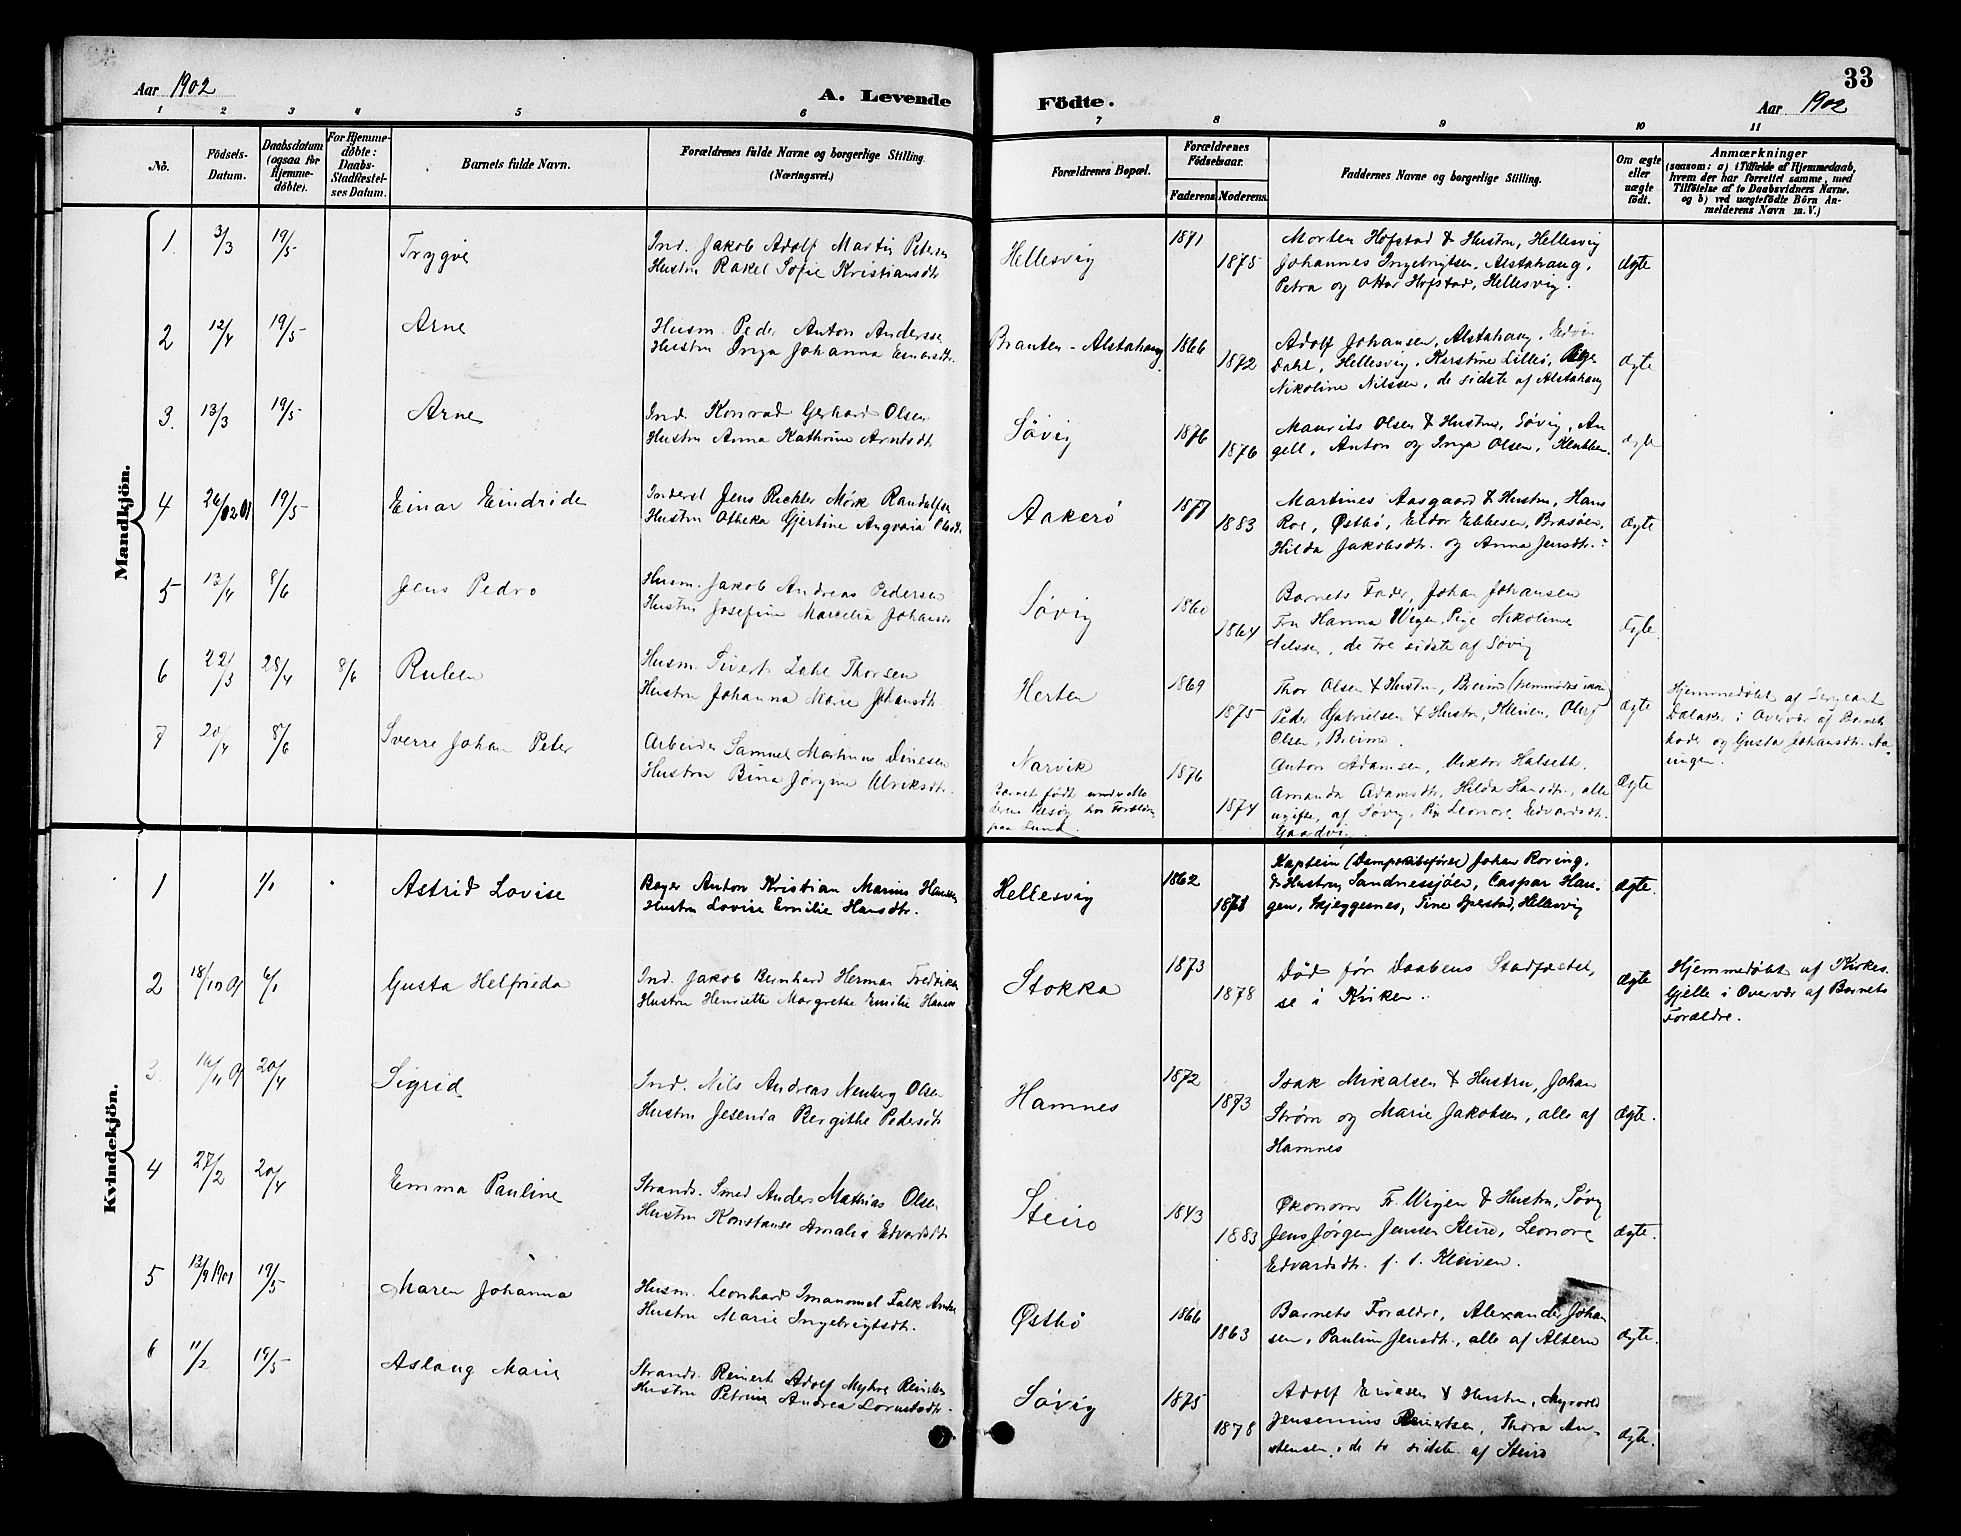 Aar 1902
A. Levende
Födte.
33
Aar 1902
1 2 3 4 5 6 7 8 9 10 11
No.
Födsels-
Datum.
Daabsdatum
(ogsaa for
Hjemme-
döbte).
For Hjemme-
döbte:
Daabs-
Stadfæstel-
ses Datum.
Barnets fulde Navn.
Forældrenes fulde Navne og borgerlige Stilling
(Næringsvei.)
Forældrenes Bopæl.
Forældrenes
Födselsaar.
Faderens
Moderens
Faddernes Navne og borgerlige Stilling.
Om ægte
eller
uægte
födt.
Anmærkninger
(saasom: a) i Tilfælde af Hjemmedaab,
hvem der har forrettet samme, med
Tilföielse af to Daabsvidners Navne.
og b) ved uægtefödte Börn An-
melderens Navn m. V.)
Mandkjön.
1. 3/3 19/5 Trygve
Ind. Jakob Adolf Martin Petersen
Hustru Rakel Sofie Kristiansdtr
Hellesvig 1871 1875
Morten Hofstad & Hustru, Hellesvig
Johannes Ingebrigtsen, Alstahaug,
Petra og Ottar Hofstad, Hellesvig.
ægte
2 12/4 19/5 Arne
Husm. Peder Anton Anderssen
Hustru Inga Johanna
Brauten - Alstahaug 1866 1872
Adolf Johansen, Alstahaug,
Dahl, Hellesvig, Kirstine Lillei, Pige
Nikoline Nilssen, de sidste af Alstahaug
ægte
3. 13/3 19/5 Arne
Ind. Konrad Gerhard Olsen
Hustru Anna Kathrine Arntsdt.
Søvig 1876 1876
Maurits Olsen & Hustru, Søvig, An
gell, Anton og Inga Olsen, Klubben.
ægte
4 26/ 19/5 Einar Eindride
Inderst Jens Richter Mørk Randulfsen
Hustru Otheka Gjertine Angvaria
Aakerø 1877 1883
Martines Aasgaard & Hustru, Hans
Roe, Østbø, Eldor Ebbesen, Brasöen,
Hilda Jakobsdtr. og Anna Jensdtr.
ægte
5 13/4 8/6 Jens Pedro
Husm. Jakob Andreas Pedersen
Hustru Josefine Marcelia Johansd
Søvig 1860 1864
Barnets Fader, Johan Johansen
Fru Hanna Wigen, Pige Nikoline
Nilssen, de tre sidste af Søvig
ægte.
6 22/3 28/4 8/6 Ruben
Husm. Sivert Dahl Thorsen
Hustru Johanna Marie Johansdt.
Herten 1869 1875
Thor Olsen & Hustru, Breimo
Peder Gabrielsen & Hustru, Kleiven, Oluf
Olsen, Breimo.
ægte
Hjemmedöbt af Sergeant
Dalaker i Overvær af Barnets
Fader og Gusta Johansdtr.
7 20/4 8/6 Sverre Johan Peter
Arbeider Samuel Martinus Dinesen
Hustru Bina Jørgine Ulriksdtr.
Narvik
Barnet født under Mo
derens Besøg hos Forældre
paa Lund.
1876 1874
Anton Adamsen, Viktor Halseth.
Amanda Adamsdtr, Hilda Hansdtr, alle
ugifte, af Søvig, Pige Leonore Edvardsdtr.
ægte
Kvindekjön.
1 1/1 Astrid Lovise
Bager Anton Kristian Marius Hansen
Hustru Lovise Emilie Hansdtr.
Hellesvig 1862
Kaptein (Dampskibsfører) Johan Roring,
& Hustru, Sandnessjöen, Caspar Han-
gen, Skjeggesnes, Tine, Hellesvig
ægte.
2 18/10 01 6/1 Gusta Helfrida
Ind. Jakob Bernhard Herman Fredriksen
Hustru Henriette Margrethe Emilie Hansen
Stokka 1873 1878
Død før Daabens Stadfæstel,
se i Kirken.
ægte
Hjemmedöbt af Kirkes.
Gjelle i Overvær af Barnets
Forældre.
3. 16/11 01 20/4 Sigrid
Ind. Nils Andreas Neuberg Olsen
Hustru Jesenda Bergithe Pedersdtr
Hamnes 1872 1873
Isak Mikalsen & Hustru, Johan
Strøm og Marie Jakobsen, alle af
Hamnes
ægte.
4 27/2 20/4 Emma Pauline
Strands. Smed Anders Mathias Olsen
Hustru Konstanse Amalie Edvardsdtr
Steiro 1843 1883
Økonom Fr. Wigen & Hustru, Søvig
Jens Jørgen Jensen Steiro, Leonore
Edvardsdtr. f. s. Kleiven.
ægte.
5 13/9 1901 19/5 Maren Johanna
Husm. Leonhard Imanouel Falk
Hustru Marie Ingebrigtsdtr.
Østbø 1866 1863
Barnets Forældre, Alexander Johan
sen, Pauline Jensdtr., alle af Altern
ægte.
6 11/2 19/5 Aslaug Marie
Strands. Reinert Adolf Myhre
Hustru Petrine Andrea
Søvig 1875 1878
Adolf Eriksen & Hustru, Myrvold
Jensenius Reinertsen, Thora An-
stensen, de to sidste af Steiro
ægte.